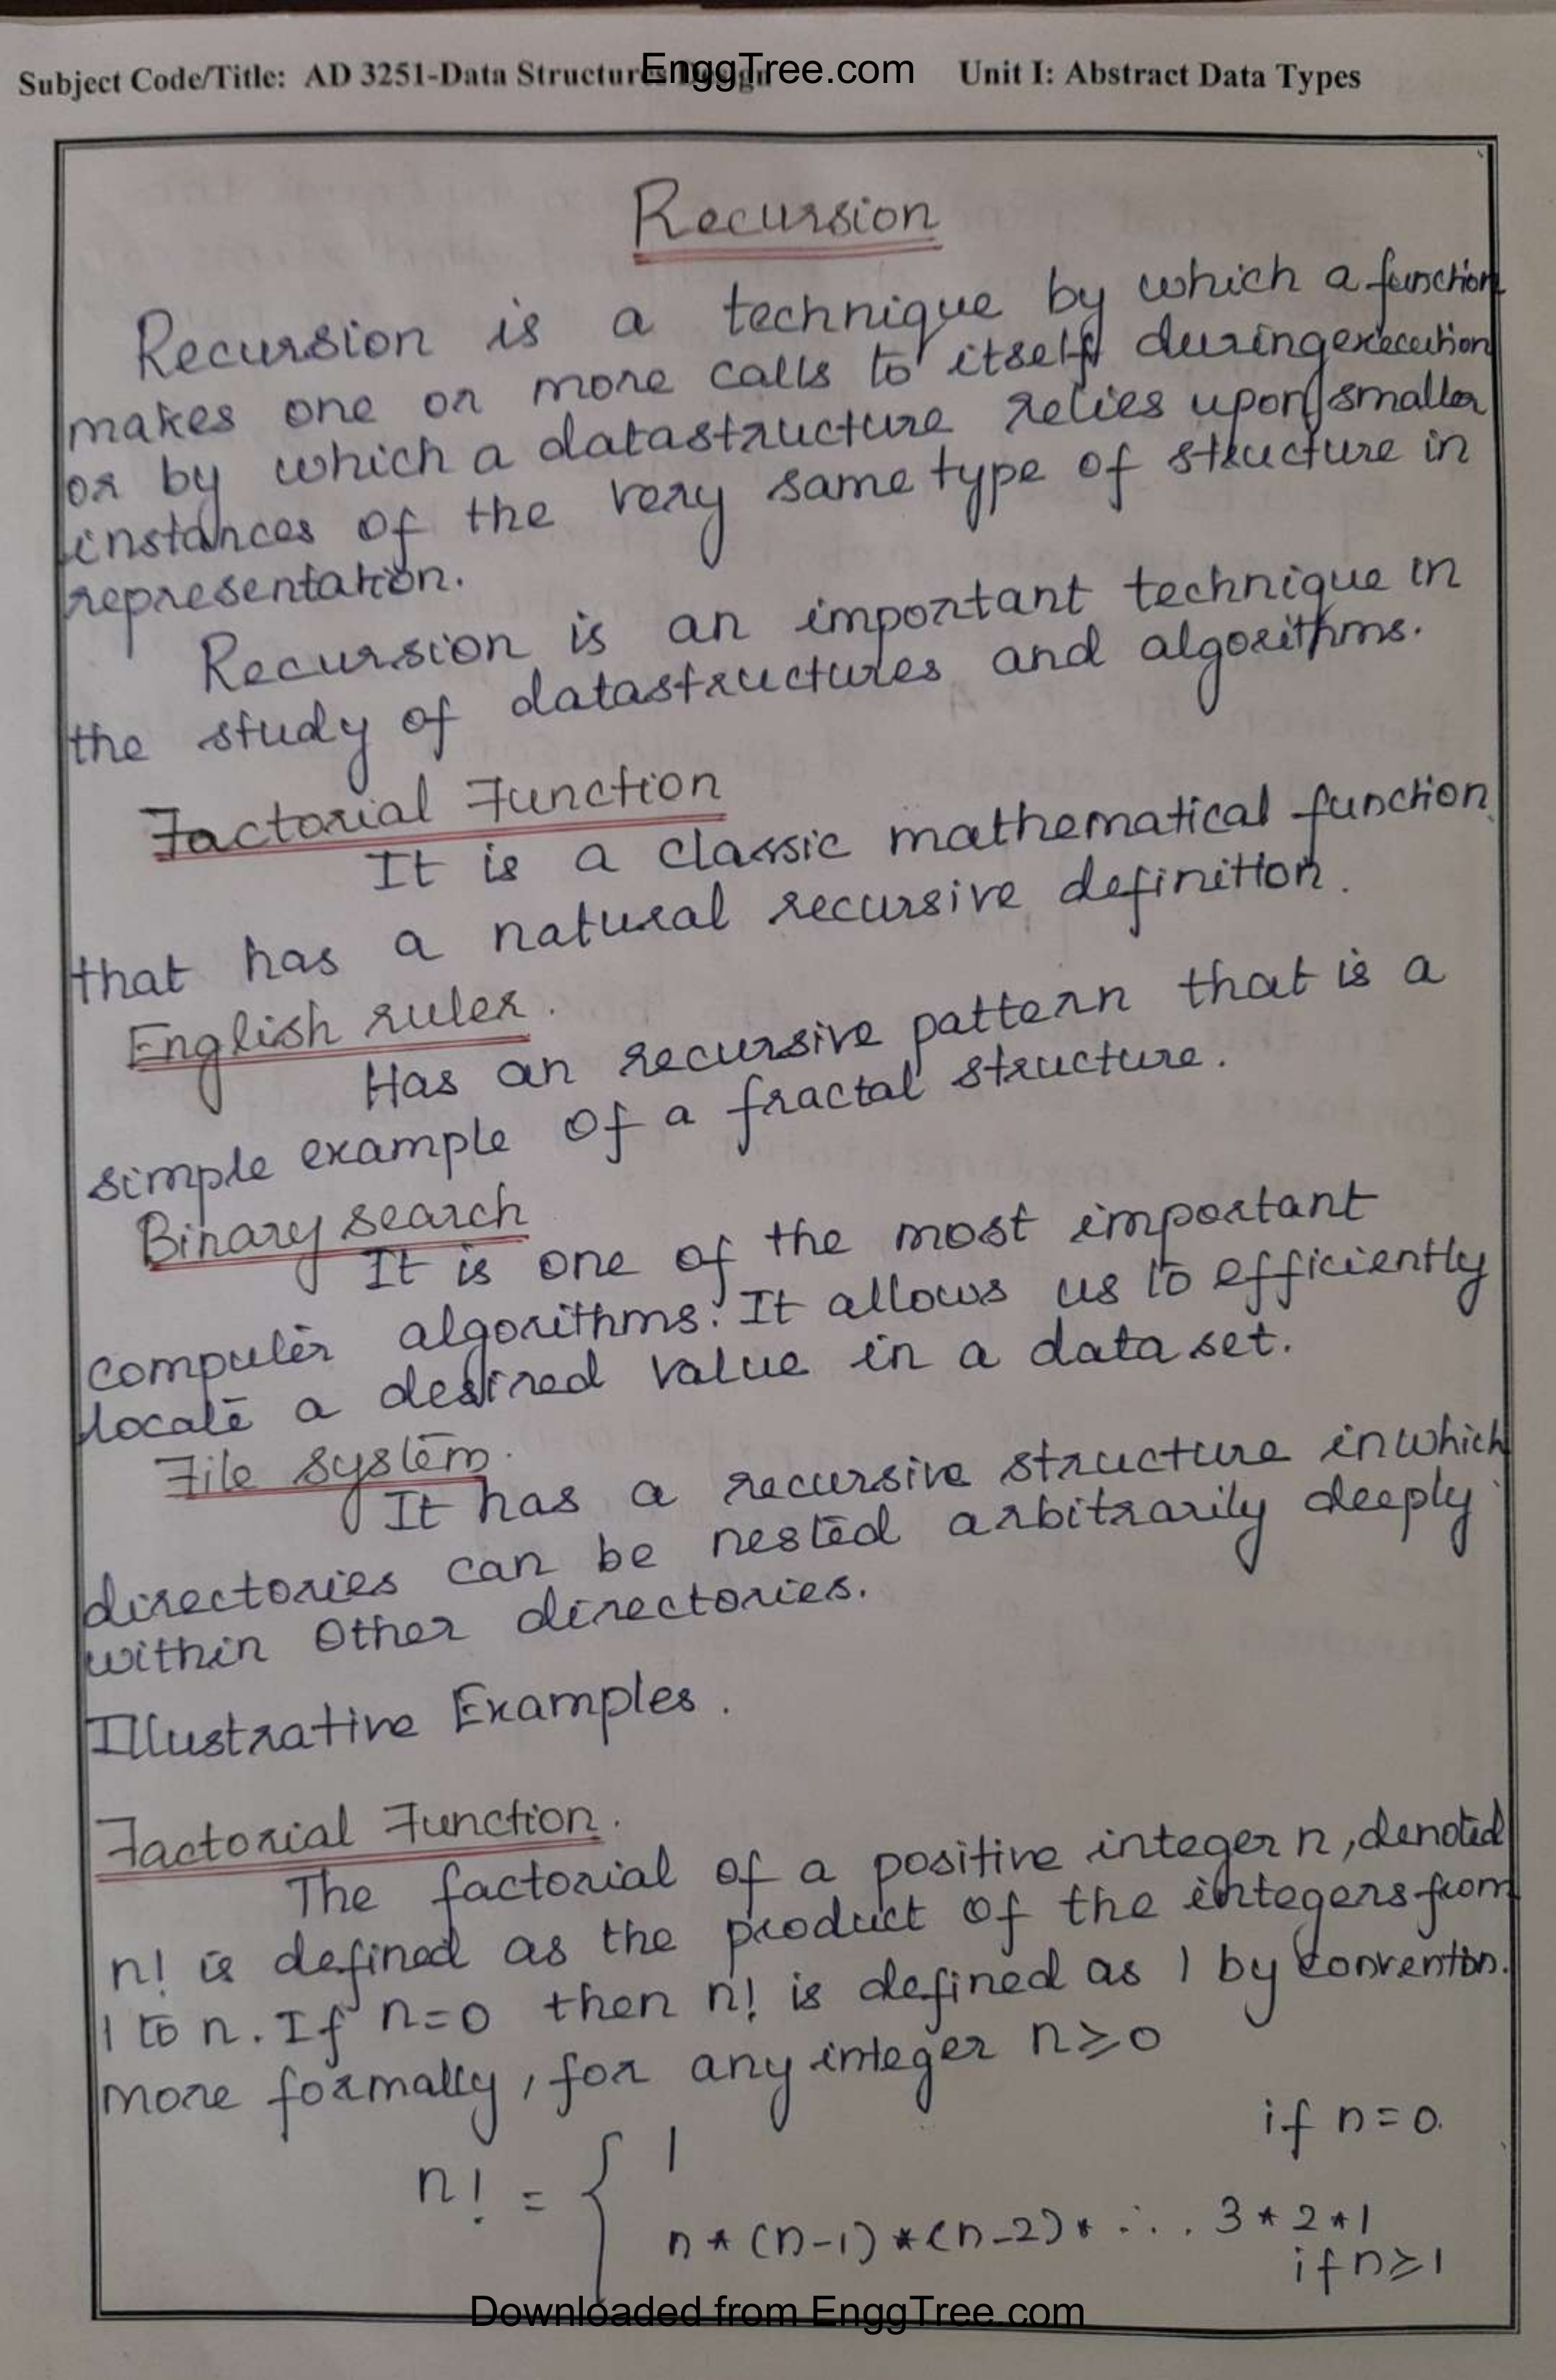 EnggTree.com
Subject Code/Title: AD 3251-Data Structures Design Unit I: Abstract Data Types
Recursion
Recursion is a technique by which a function
makes one or more calls to itself during execution
or by which a datastructure relies upon smaller
instances of the very same type of structure in
representation.
Recursion is an important technique in
the study of datastructures and algorithms.
Factorial Function
It is a classic mathematical function
that has a natural recursive definition.
English ruler.
Has an recursive pattern that is a
simple example of a fractal structure.
Binary search
It is one of the most important
computer algorithms. It allows us to efficiently
locate a desired value in a data set.
File system.
It has a recursive structure in which
directories can be nested arbitrarily deeply
within other directories.
Illustrative Examples.
Factorial Function.
The factorial of a positive integer n, denoted
n! is defined as the product of the integers from
1 to n. If n=0 then n! is defined as 1 by convention.
more formally, for any integer n≥0
n! = { 1 if n=0.
n*(n-1)*(n-2)* ... 3*2*1
if n≥1
Downloaded from EnggTree.com